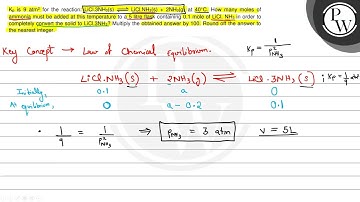 Kp is 9 atm² for the reaction: LiCl·3NH₃(s) ⇌ LiCl·NH₃(s) + 2NH₃(g) at 40°C. How many moles of
ammonia must be added at this temperature to a 5 litre flask containing 0.1 mole of LiCl. NH₃ in order to
completely convert the solid to LiCl·3NH₃? Multiply the obtained answer by 100. Round off the answer to
the nearest integer.
Key Concept → Law of Chemical Equilibrium.
Kp = 1/P²NH₃
LiCl·NH₃(s) + 2NH₃(g) ⇌ LiCl·3NH₃(s) ; Kp = 1/9
Initially, 0.1 a 0
At equilibrium, 0 a-0.2 0.1
• 1/9 = 1/P²NH₃ ⇒ PNH₃ = 3 atm V = 5L